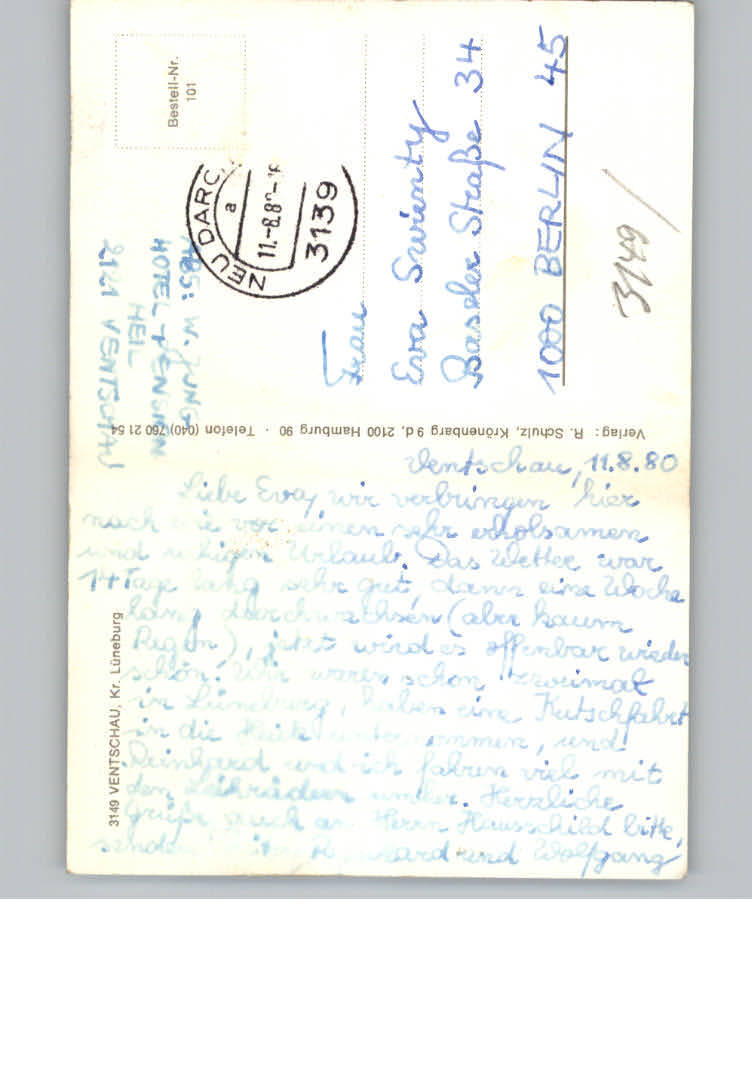 Bestell-Nr.
101
NEU DARC
a
11.-8.8
3139
ABS: W. JUNG
HOTEL-PENSION
HEIL
2121 VENTSCHAU
Frau
Eva Swienty
Baseler Straße 34
1000 BERLIN 45
3149
Verlag: R. Schulz, Krönenbarg 9 d, 2100 Hamburg 90 · Telefon (040) 760 21 54
3149 VENTSCHAU, Kr. Lüneburg
Ventschau, 11.8.80
Liebe Eva, wir verbringen hier
nach wie vor einen sehr erholsamen
und ruhigen Urlaub. Das Wetter war
14 Tage lang sehr gut, dann eine Woche
lang durchwachsen (aber kaum
Regen), jetzt wird es offenbar wieder
schön. Wir waren schon zweimal
in Lüneburg, haben eine Kutschfahrt
in die Heide unternommen, und
Reinhard und ich fahren viel mit
den Leihrädern umher. Herzliche
Grüße, auch an Herrn Hausschild bitte,
senden Reinhard und Wolfgang